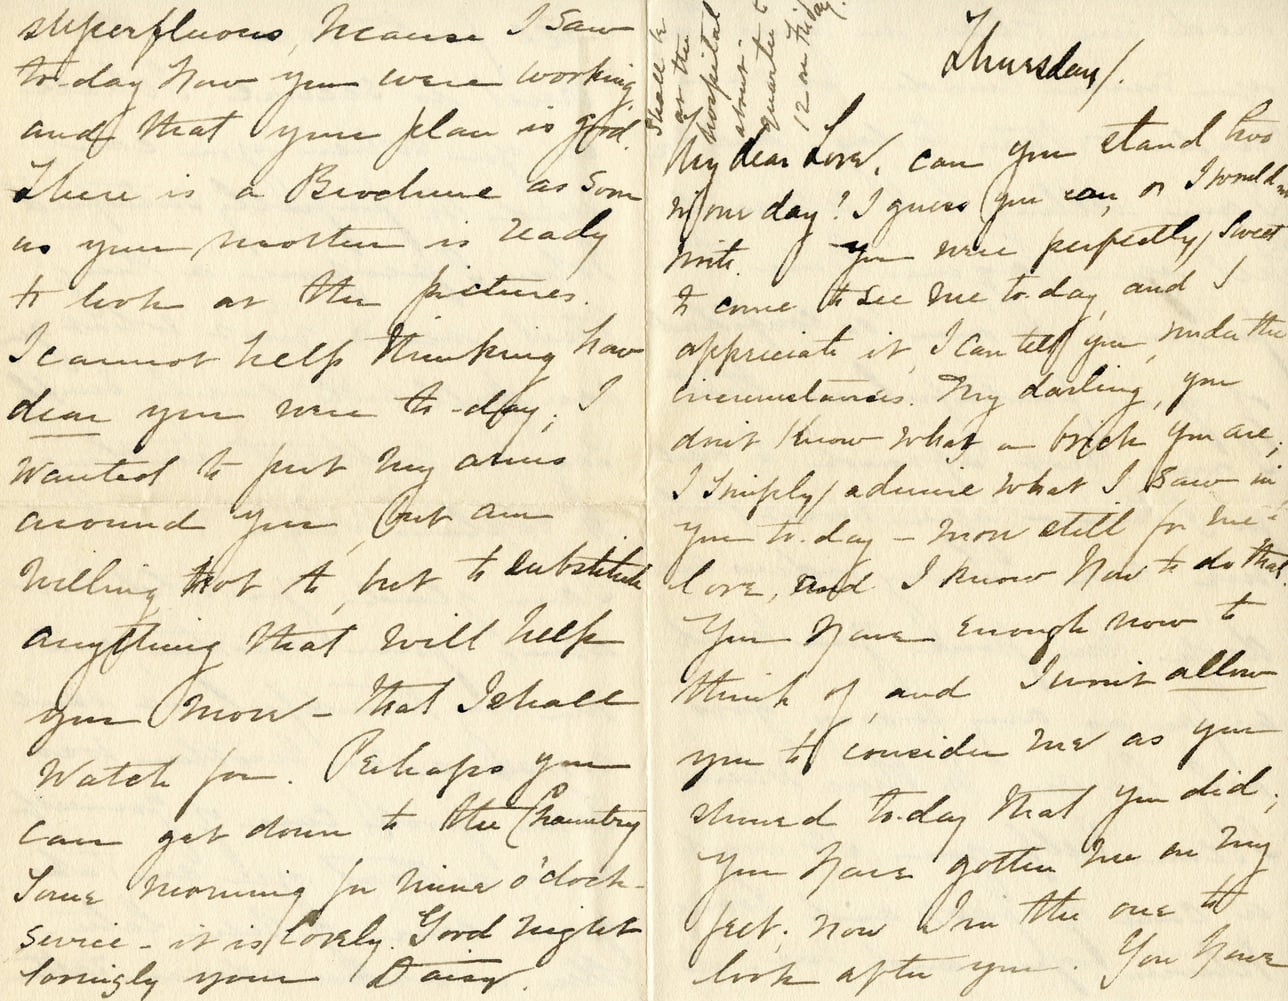 Thursday/.
My dear Love, can you stand two
in one day? I guess you can, or I wouldn't
write. You were perfectly sweet
to come to see me to-day, and I
appreciate it, I can tell you, under the
circumstances. My darling, you
don't know what a brick you are,
I simply admire what I saw in
you to-day - more still for me -
love, and I know how to do that.
You have enough now to
think of, and I won't allow
you to consider me as you
showed to-day that you did;
You have gotten me on my
feet; now I'm the one to
look after you. You have
Shall be
at the
hospital
about
quarter to
12 on Friday.
superfluous, because I saw
to-day how you were working,
and that your plan is good.
There is a Brochure as soon
as your mother is ready
to look at the pictures.
I cannot help thinking how
dear you were to-day; I
wanted to put my arms
around you, but am
willing not to, but to substitute
anything that will help
you more - that I shall
watch for. Perhaps you
can get down to the Chauntry
some morning for nine o'clock -
service - it is lovely. Good night
lovingly your Daisy.